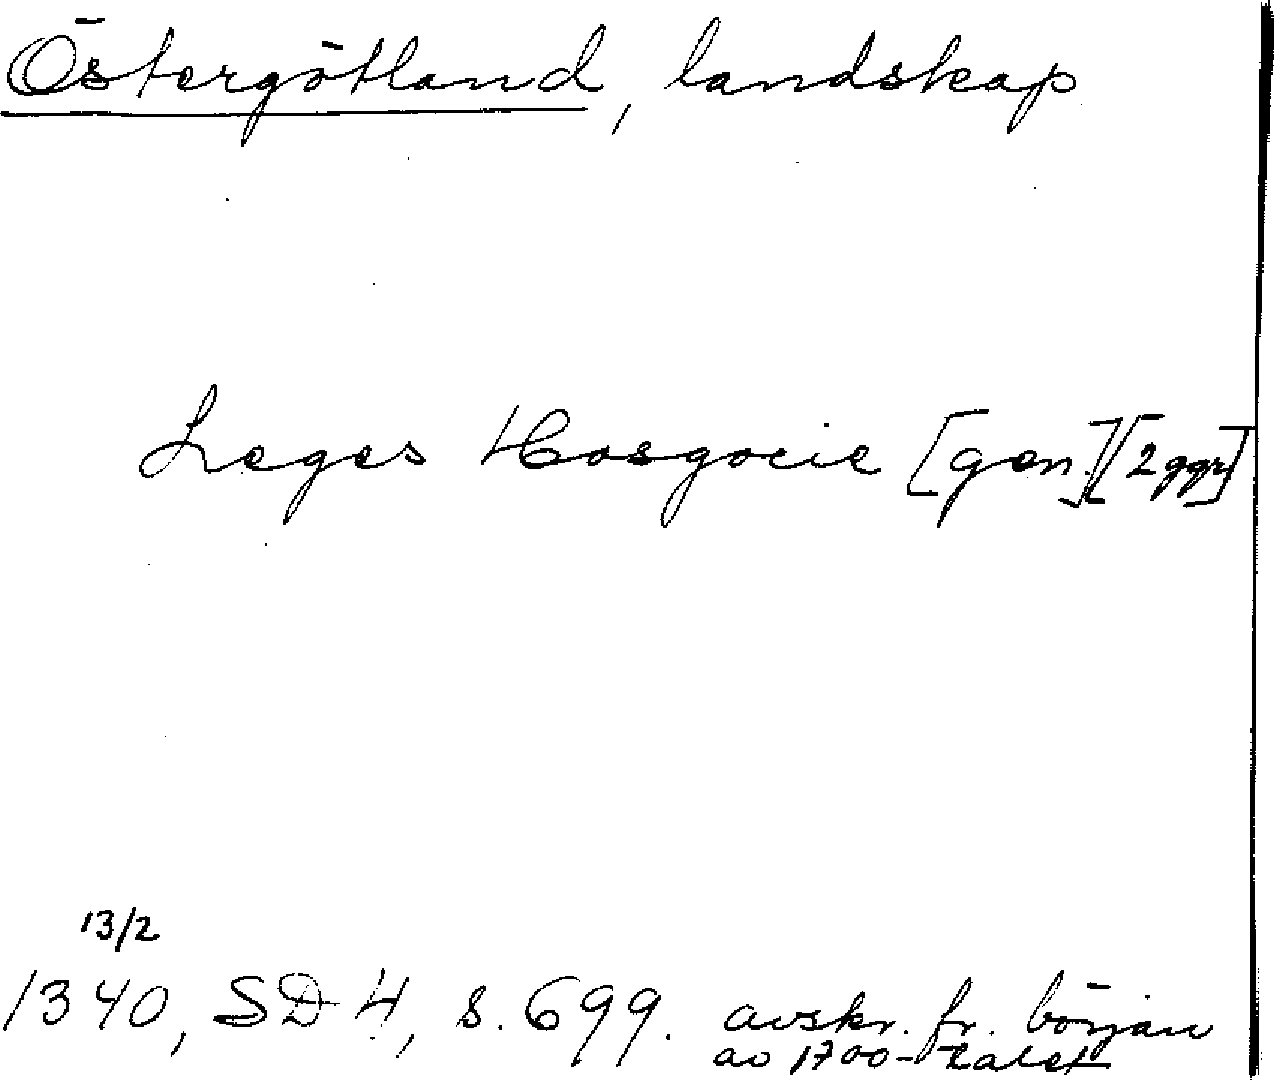 Östergötland, landskap
Leges Hosgocie [gen.][2 ggr]
13/2
1340, SD 4, s. 699. avskr. fr. början
av 1700-talet